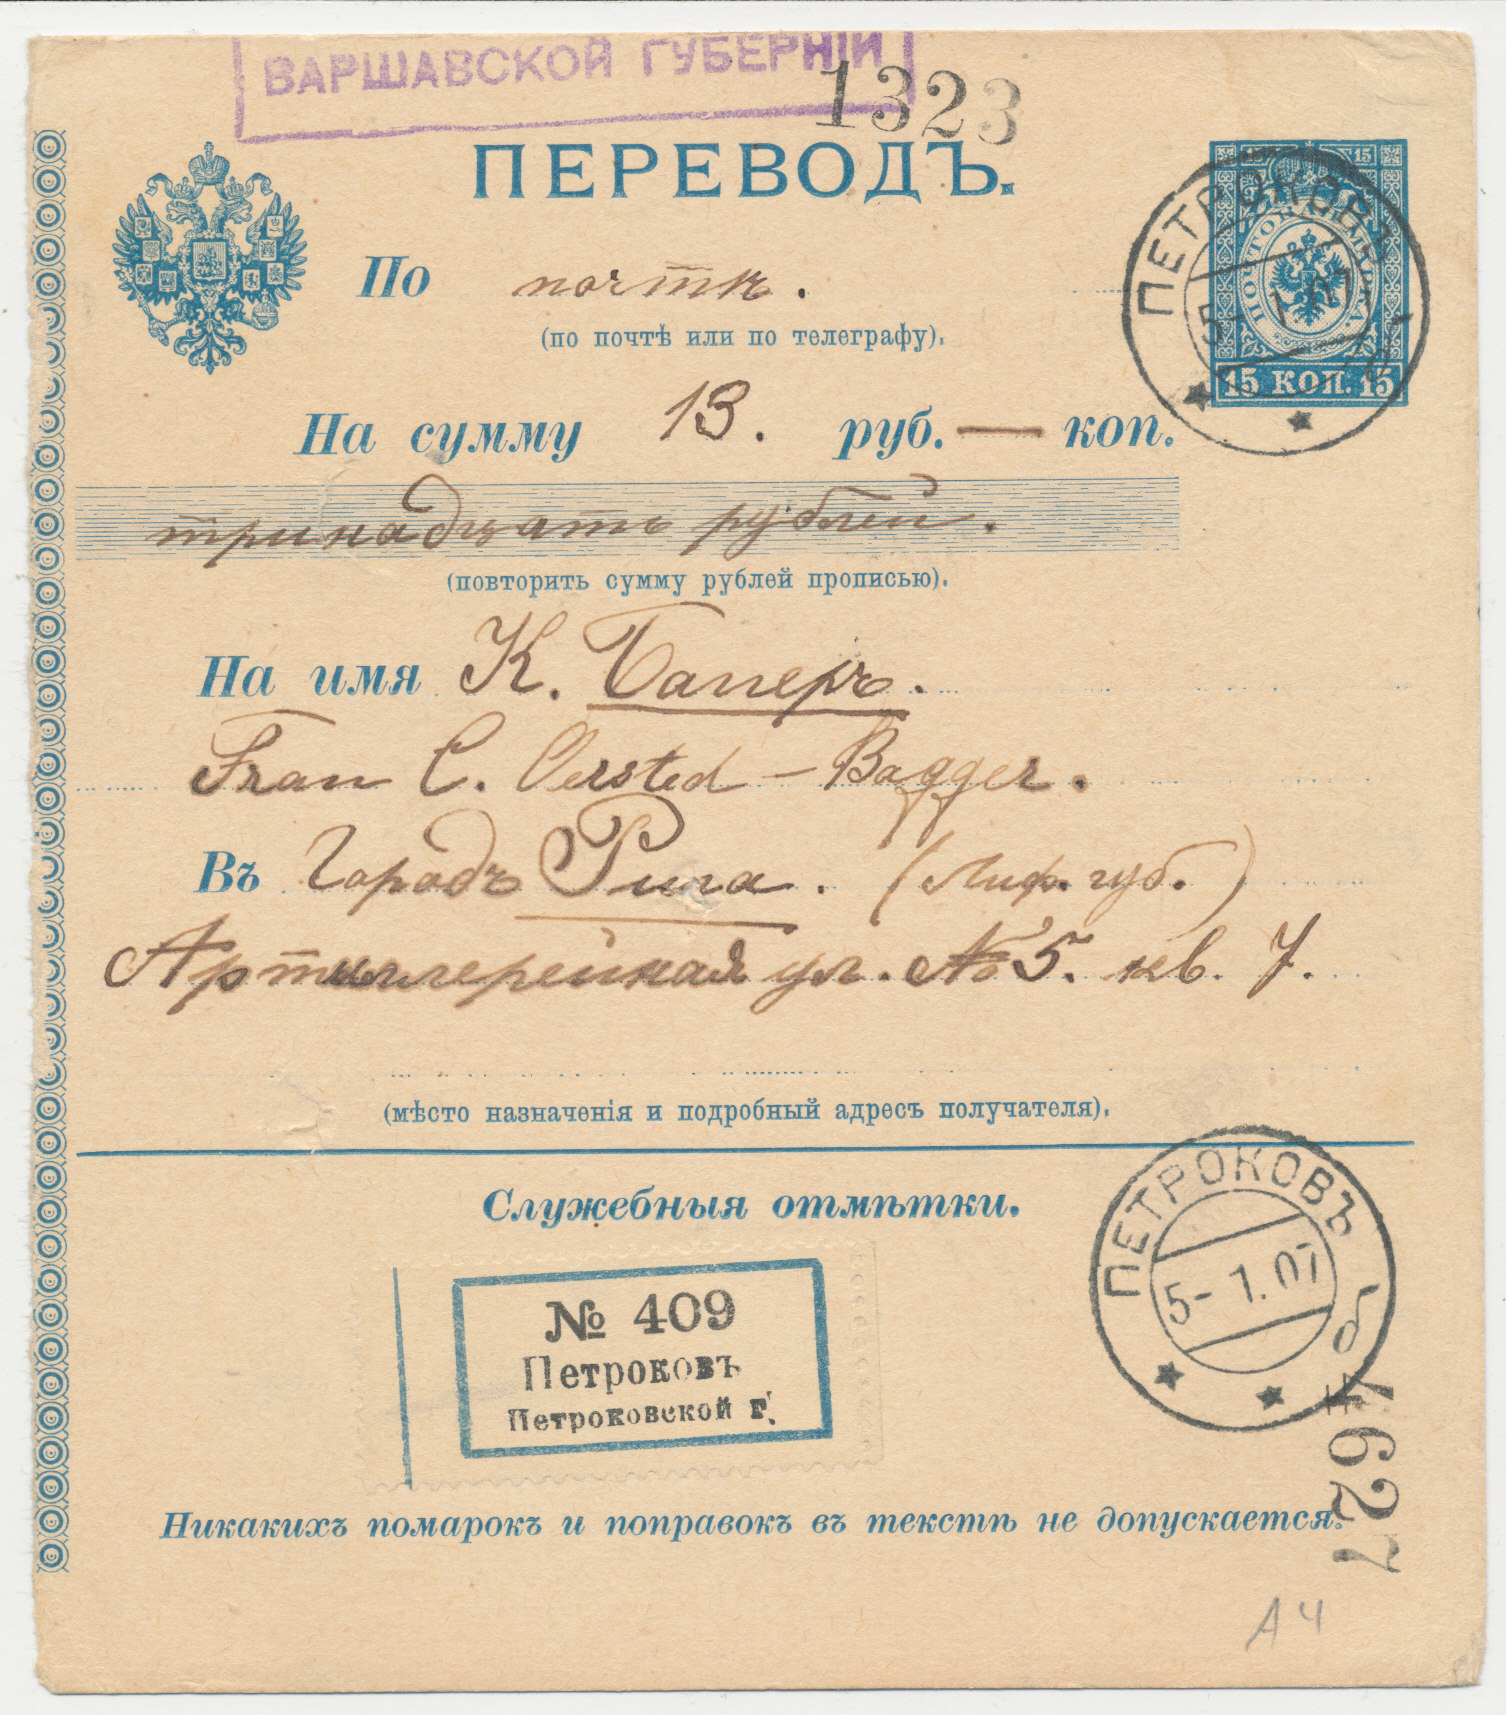 ВАРШАВСКОЙ ГУБЕРНІИ
1323
ПЕРЕВОДЪ.
15 15
ПОЧТОВ. МАРКА.
15 КОП. 15
ПЕТРОКОВЪ
5- 1.07
По почтѣ.
(по почтѣ или по телеграфу).
На сумму 13. руб. — коп.
тринадцать рублей.
(повторить сумму рублей прописью).
На имя К. Багеръ.
Frau C. Oersted – Bagger.
Въ Городъ Рига. (Лифл. губ.)
Артиллерейская ул. № 5. кв. 7.
(мѣсто назначенія и подробный адресъ получателя).
Служебныя отмѣтки.
ПЕТРОКОВЪ
5- 1.07
№ 409
Петроковъ
Петроковской г.
4627
Никакихъ помарокъ и поправокъ въ текстѣ не допускается.
А 4